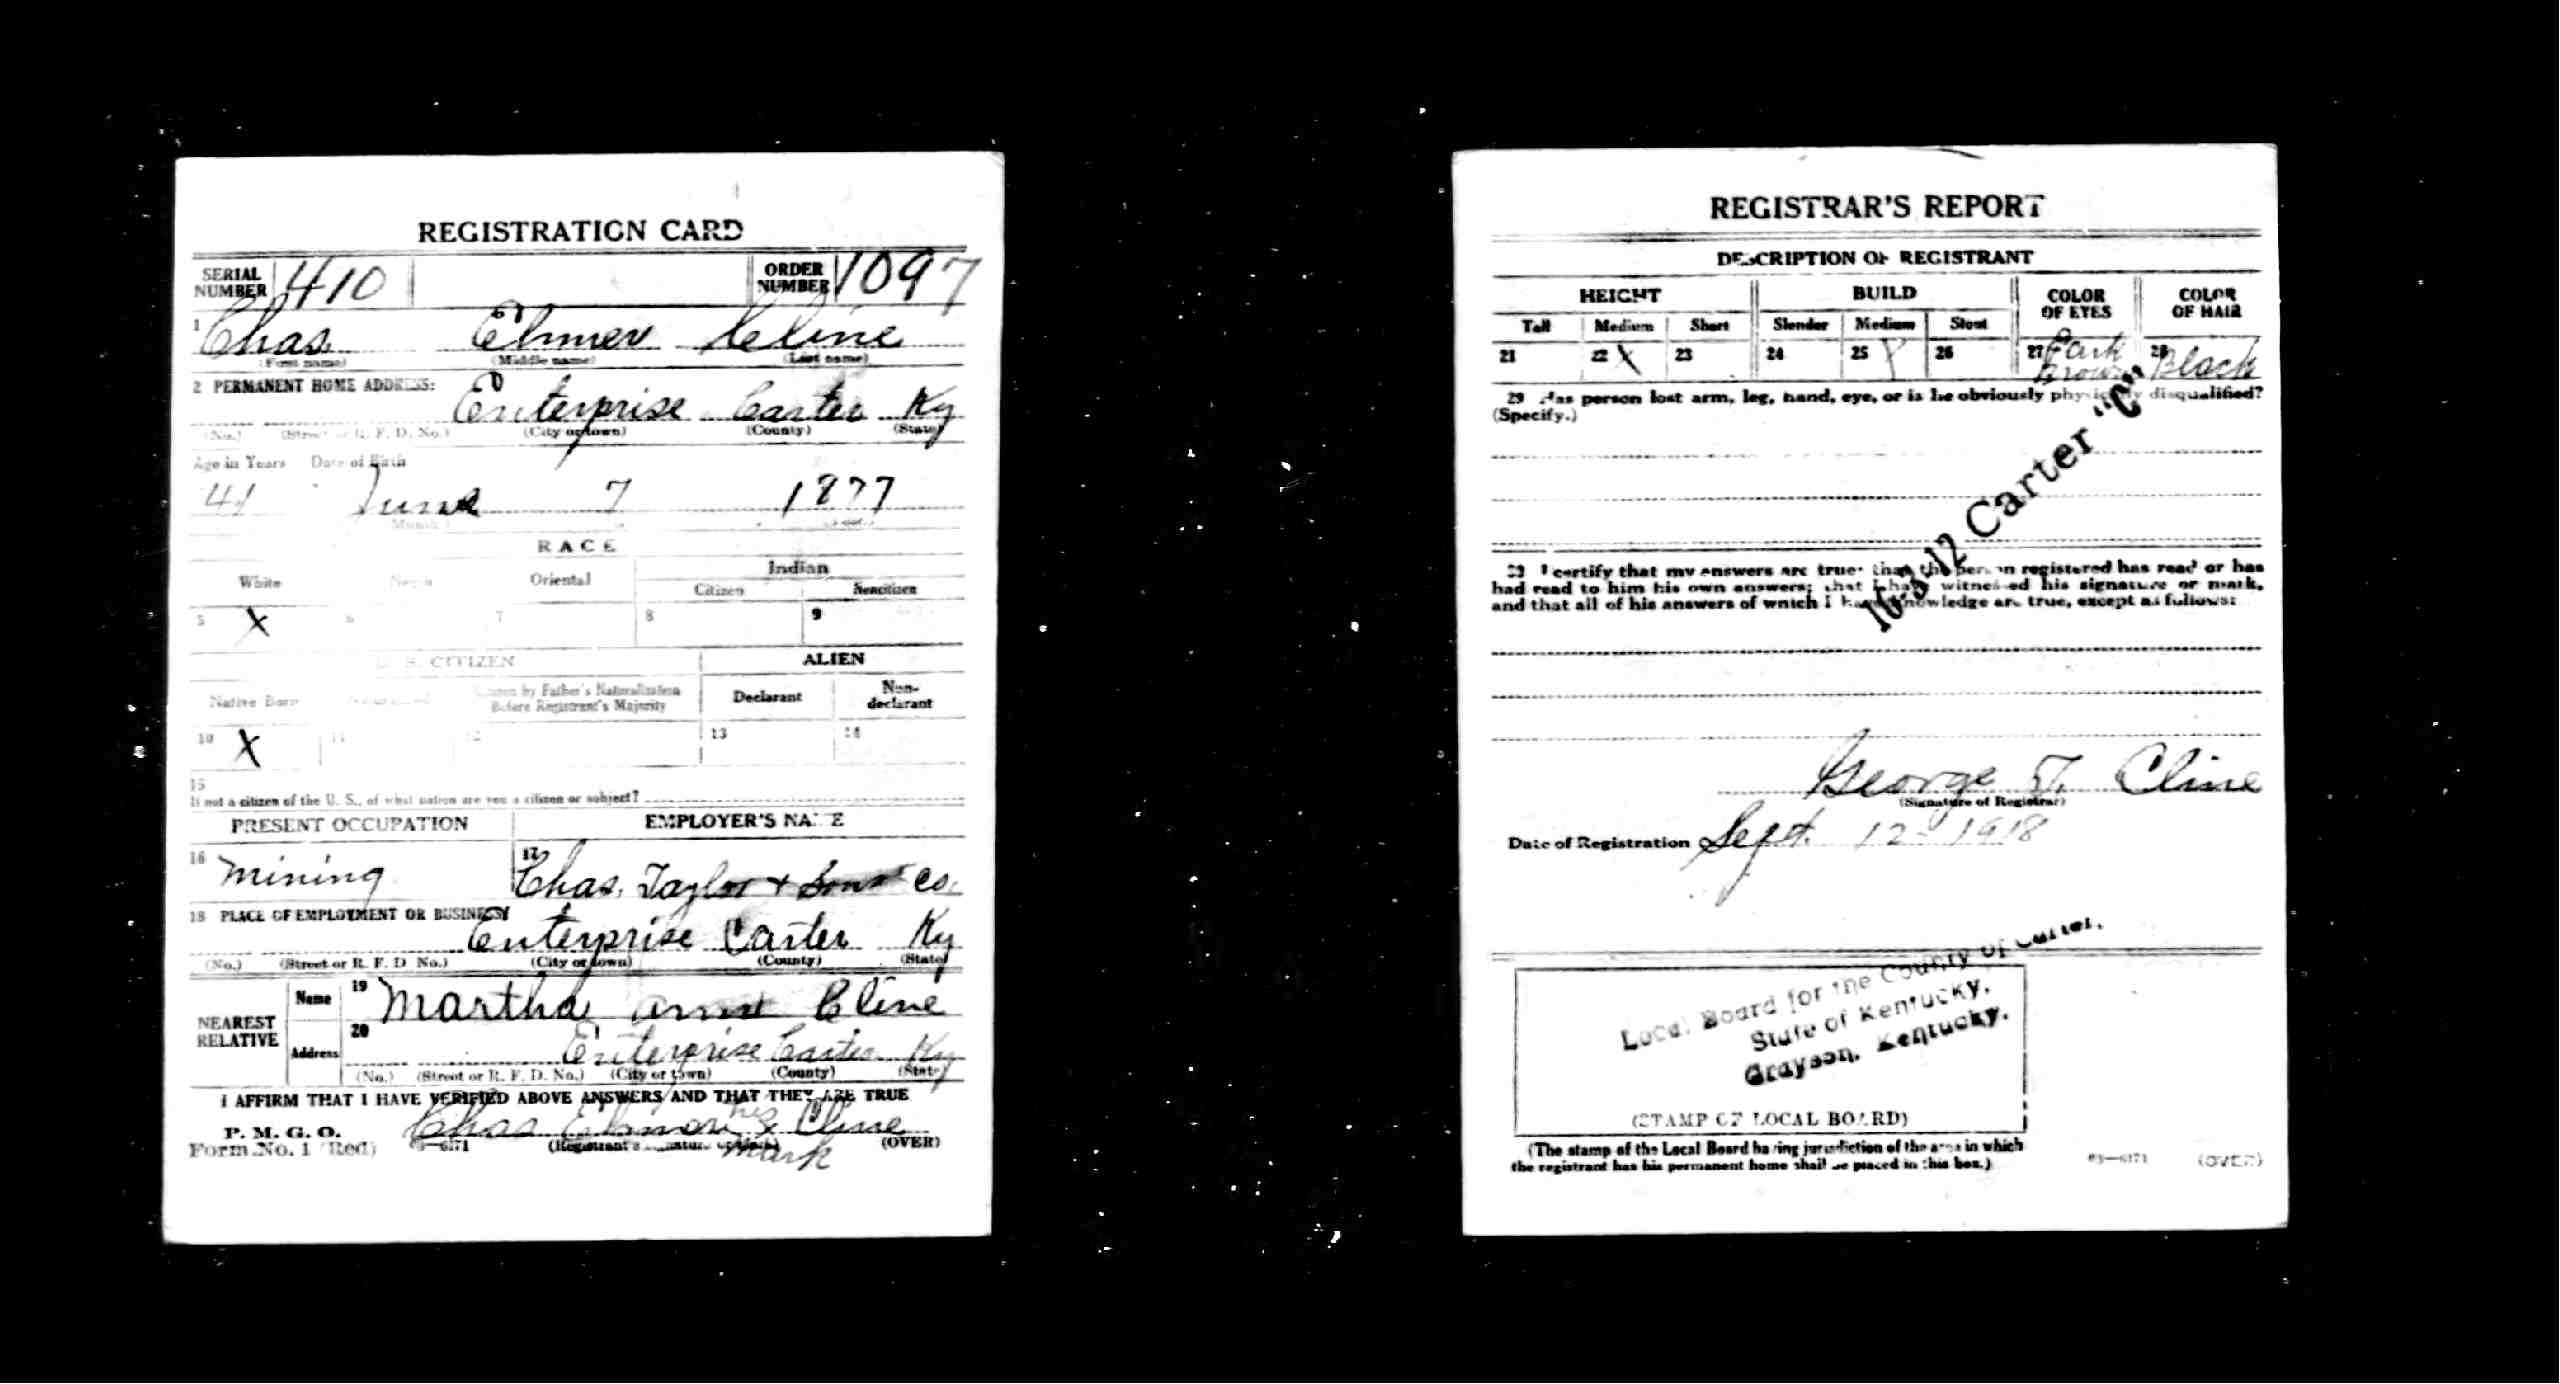 REGISTRATION CARD
SERIAL NUMBER 410 ORDER NUMBER 1097
1 Chas. Elmer Cline
(First name) (Middle name) (Last name)
2 PERMANENT HOME ADDRESS:
Enterprise Carter Ky
(No.) (Street or R. F. D. No.) (City or town) (County) (State)
Age in Years Date of Birth
41 June 7 1877
RACE
White Negro Oriental Indian
Citizen Noncitizen
5 X 6 7 8 9
U. S. CITIZEN ALIEN
Native Born Naturalized Citizen by Father's Naturalization Before Registrant's Majority Declarant Non-declarant
10 X 11 12 13 14
15
If not a citizen of the U. S., of what nation are you a citizen or subject?
PRESENT OCCUPATION EMPLOYER'S NAME
16 Mining 17 Chas. Taylor + Sons Co.
18 PLACE OF EMPLOYMENT OR BUSINESS
Enterprise Carter Ky
(No.) (Street or R. F. D. No.) (City or town) (County) (State)
NEAREST RELATIVE
Name 19 Martha Ann Cline
Address 20 Enterprise Carter Ky
(No.) (Street or R. F. D. No.) (City or town) (County) (State)
I AFFIRM THAT I HAVE VERIFIED ABOVE ANSWERS AND THAT THEY ARE TRUE
P. M. G. O.
Form No. 1 (Red)
Chas Elmore his x mark Cline
(Registrant's signature or mark) (OVER)
REGISTRAR'S REPORT
DESCRIPTION OF REGISTRANT
HEIGHT BUILD COLOR OF EYES COLOR OF HAIR
Tall Medium Short Slender Medium Stout
21 22 X 23 24 25 X 26 27 Dark Brown 28 Black
29 Has person lost arm, leg, hand, eye, or is he obviously physically disqualified?
(Specify.)
16-3-12 Carter "C"
30 I certify that my answers are true; that the person registered has read or has
had read to him his own answers; that I have witnessed his signature or mark,
and that all of his answers of which I have knowledge are true, except as follows:
George T. Cline
(Signature of Registrar)
Date of Registration Sept. 12 - 1918
Local Board for the County of Carter,
State of Kentucky,
Grayson, Kentucky.
(STAMP OF LOCAL BOARD)
(The stamp of the Local Board having jurisdiction of the area in which
the registrant has his permanent home shall be placed in this box.)
03—6171 (OVER)